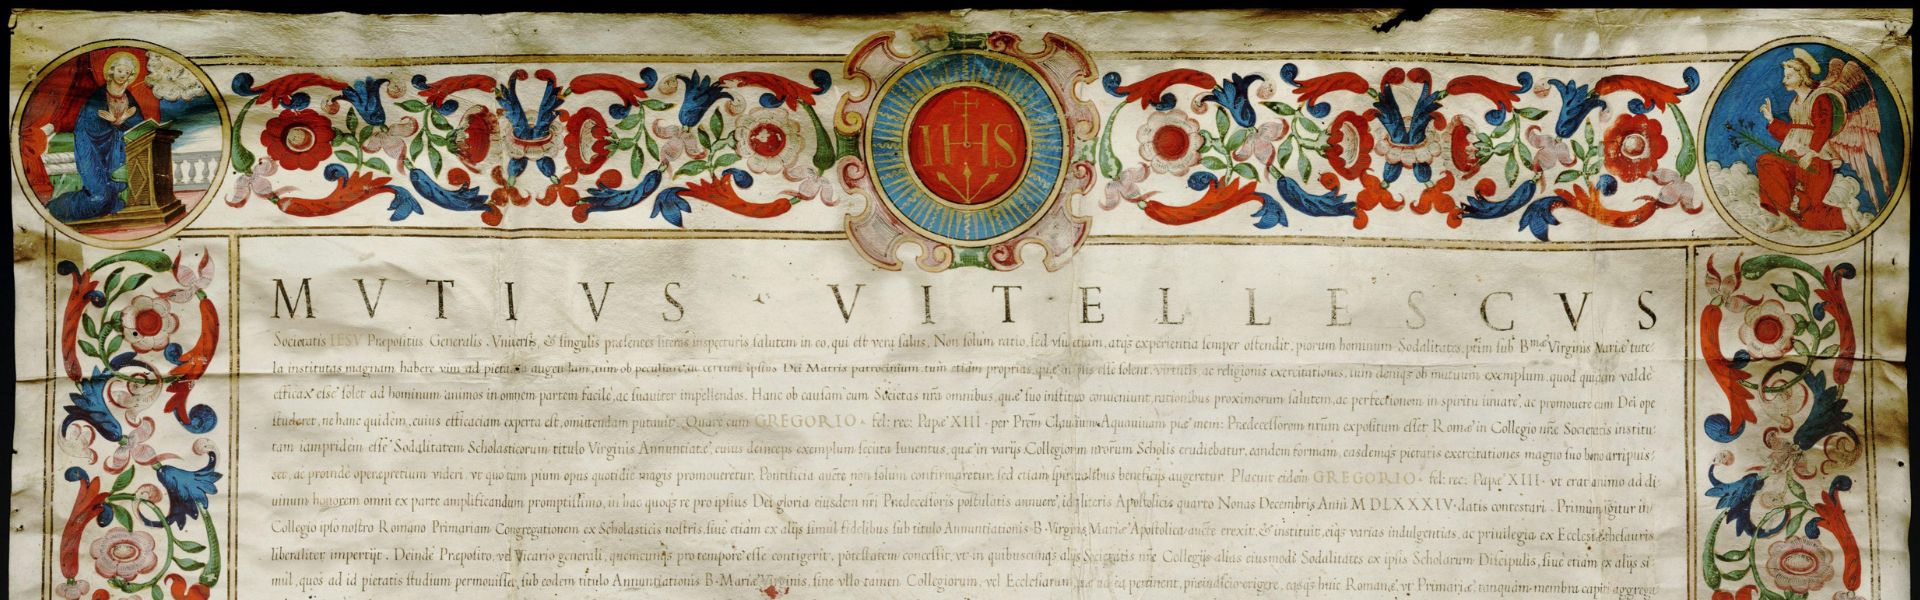 IHS
MVTIVS · VITELLESCVS
Societatis IESV Præpositus Generalis. Vniuersis, & singulis præsentes literas inspecturis salutem in eo, qui est vera salus. Non solum ratio, sed vsu etiam, atq; experientia semper ostendit, piorum hominum Sodalitates, præsertim sub Bmæ Virginis Mariæ tute-
la institutas magnam habere vim ad pietatem augendam, tum ob peculiare, ac certum ipsius Dei Matris patrocinium, tum etiam proprias, quæ in illis esse solent, virtutis, ac religionis exercitationes, tum deniq; ob mutuum exemplum, quod quidem valdè
efficax esse solet ad hominum animos in omnem partem facilè, ac suauiter impellendos. Hanc ob causam cum Societas nra omnibus, quæ suo instituto conueniunt, rationibus proximorum salutem, ac perfectionem in spiritu iuuare, ac promouere cum Dei ope
studeret, ne hanc quidem, cuius efficaciam experta est, omittendam putauit. Quare cum GREGORIO · fel: rec: Papæ XIII · per Prem Claudium Aquauiuam piæ mem: Prædecessorem nrum expositum esset Romæ in Collegio nræ Societatis institu-
tam iampridem esse Sodalitatem Scholasticorum titulo Virginis Annuntiatæ, cuius deinceps exemplum secuta Iuuentus, quæ in varijs Collegiorum nrorum Scholis erudiebatur, eandem formam, easdemq; pietatis exercitationes magno suo bono arripuis-
set, ac proinde operæpretium videri, vt quo tam pium opus quotidiè magis promoueretur, Pontificia aucte non solum confirmaretur, sed etiam spiritualibus beneficijs augeretur. Placuit eidem GREGORIO · fel: rec: Papæ XIII · vt erat animo ad di-
uinum honorem omni ex parte amplificandum promptissimo, in hac quoq; re pro ipsius Dei gloria eiusdem nri Prædecessoris postulatis annuere, id literis Apostolicis quarto Nonas Decembris Anni MDLXXXIV · datis contestari. Primum igitur in
Collegio ipso nostro Romano Primariam Congregationem ex Scholasticis nostris, siuè etiam ex alijs simul fidelibus sub titulo Annuntiationis B · Virginis Mariæ Apostolica aucte erexit, & instituit, eiq; varias indulgentias, ac priuilegia ex Ecclesiæ thesauris
liberaliter impertijt. Deindè Præposito, vel Vicario generali, quemcunq; pro tempore esse contigerit, potestatem concessit, vt in quibuscunq; alijs Societatis nræ Collegijs alias eiusmodi Sodalitates ex ipsis Scholarum Discipulis, siuè etiam ex alijs si-
mul, quos ad id pietatis studium permouisset, sub eodem titulo Annuntiationis B · Mariæ Virginis, sine vllo tamen Collegiorum, vel Ecclesiarum, ad ea pertinent, præiudicio erigere, easq; huic Romanæ, vt Primariæ, tanquam membra capiti aggrega-